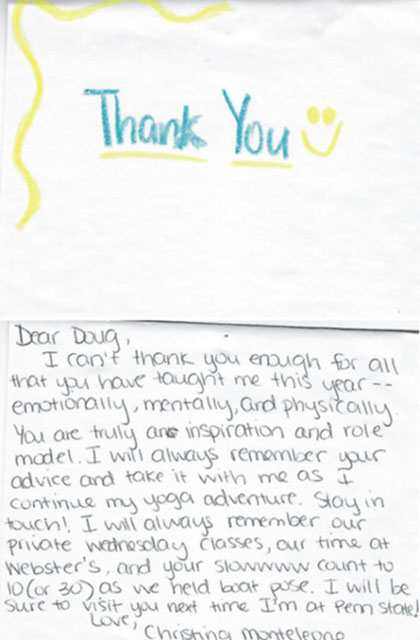 Thank You
Dear Doug,
I can't thank you enough for all
that you have taught me this year --
emotionally, mentally, and physically.
You are truly an inspiration and role
model. I will always remember your
advice and take it with me as I
continue my yoga adventure. Stay in
touch! I will always remember our
private wednesday classes, our time at
Webster's, and your slowwww count to
10 (or 30) as we held boat pose. I will be
sure to visit you next time I'm at Penn State!
Love,
Christina Monteleone